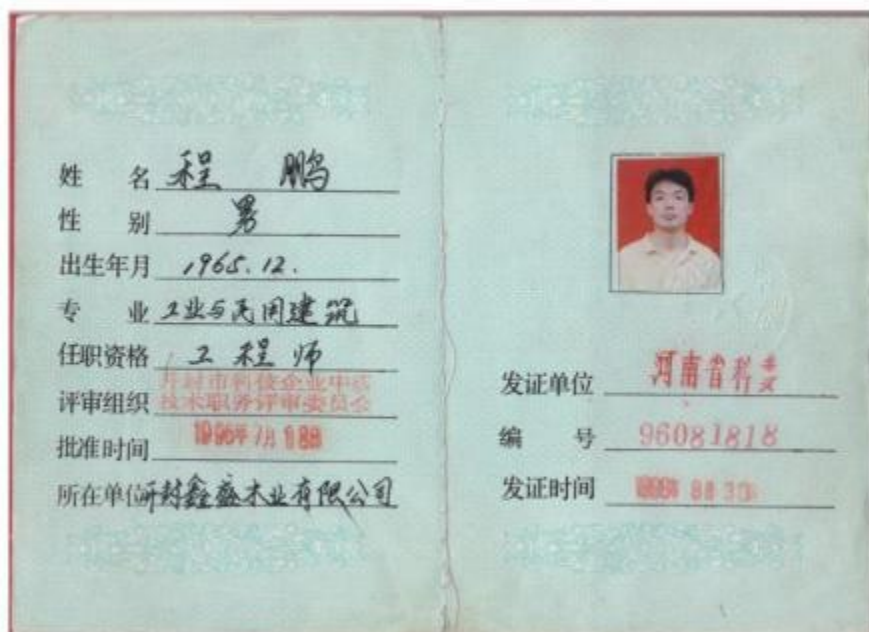 姓 名 程 鹏
性 别 男
出生年月 1965.12.
专 业 工业与民用建筑
任职资格 工程师
评审组织 开封市科技企业中级
技术职务评审委员会
批准时间 1996年7月18日
所在单位 开封鑫盛木业有限公司
发证单位 河南省科委
编 号 96081818
发证时间